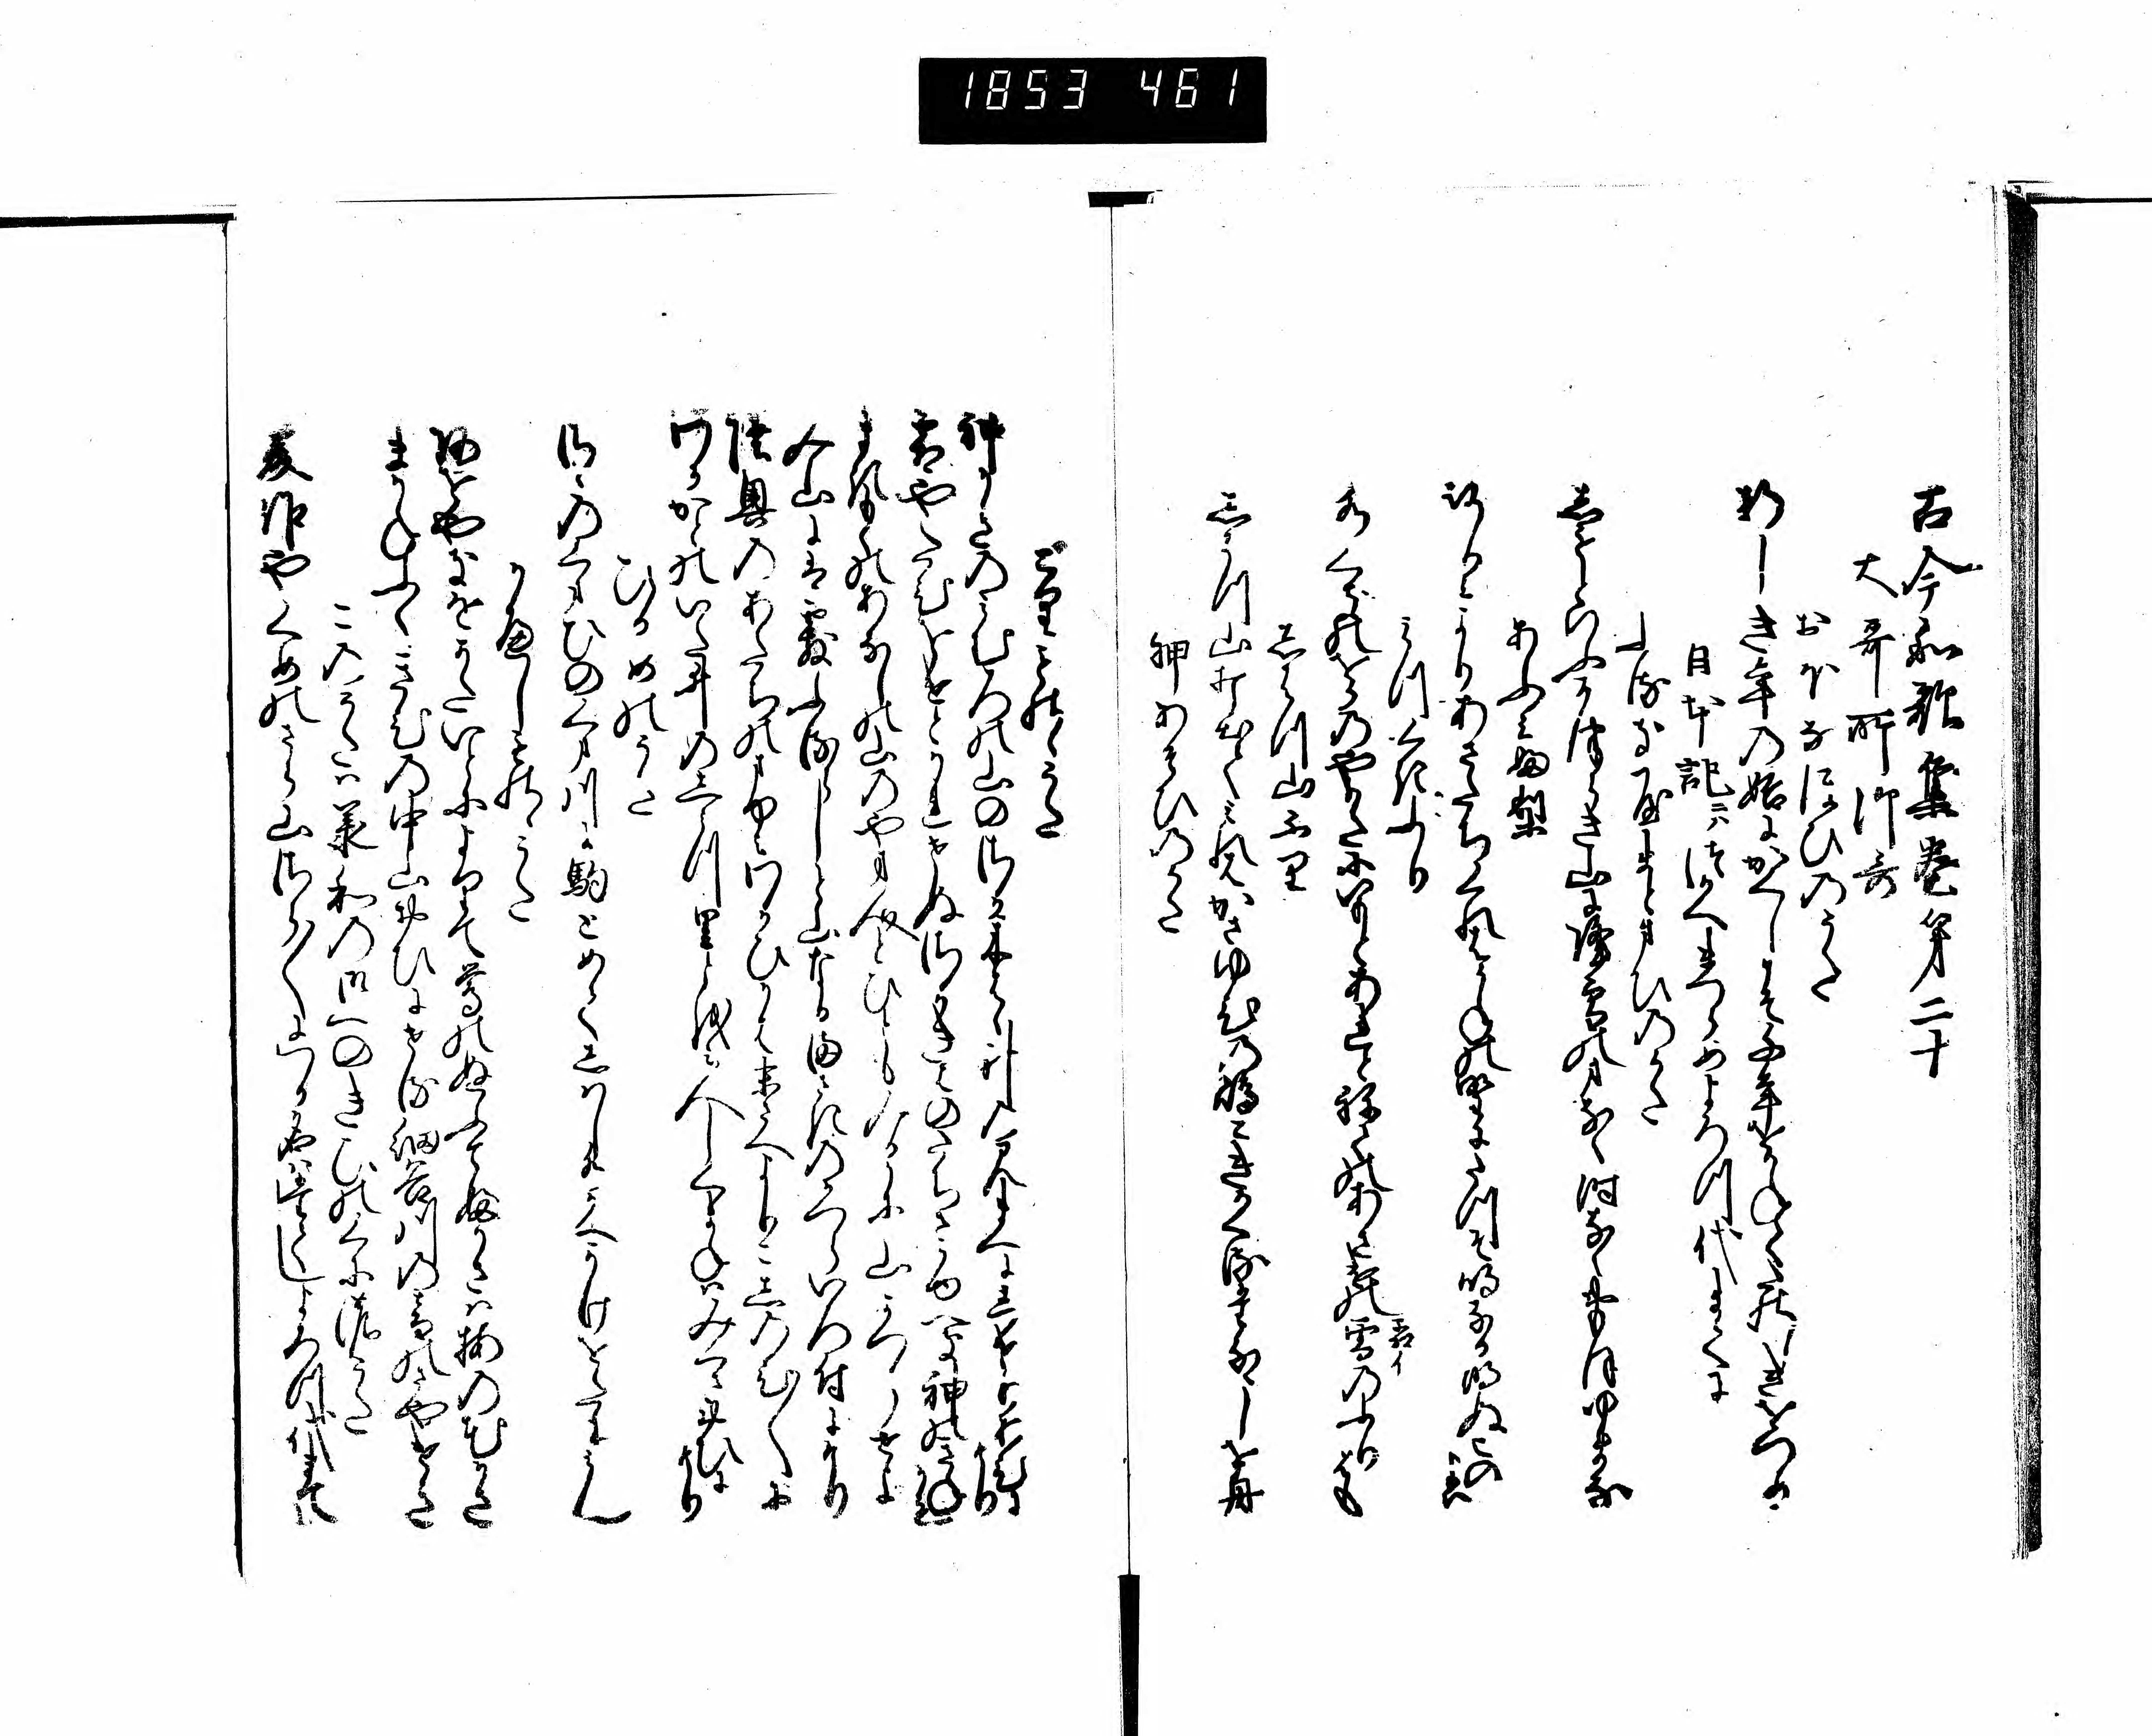 1853 461
古今和歌集巻第二十
大哥所御哥
おほなほひのうた
新しき年の始にかくしこそ千年をかねてたのしきをつめ
日本記ニハつかへまつらめよろつ代まてに
ふるきやまとまひのうた
しもとゆふかつらき山に降雪のまなく時なくおもほゆるかな
あふみふり
近江よりあさたちくれはうねの野にたつそ鳴なる明ぬこの夜は
みつくきふり
水くきのをかのやかたにいもとあれとねての朝けの霜のふりはも
しはつ山ふり
しはつ山打出て見れはかさゆひの嶋こきかくるたなゝしを舟
神あそひのうた
とりものゝうた
神かきのみむろの山のさか木はは神のみまへにしけりあひにけり
霜やたひをけとかれせぬさか木はのたちさかゆへき神のきねかも
まきもくのあなしの山のやま人と人もみるかに山かつらせよ
み山にはあられふるらしと山なるまさきのかつらいろ付にけり
陸奥のあたちのまゆみわかひかは末さへよりこしのひ〳〵に
わかかとのいた井のし水里とほみ人しくまねはみくさおひにけり
ひるめのうた
さゝのくまひのくま川に駒とめてしはし水かへかけをたにみん
かへしものゝうた
青柳をかたいとによりて鶯のぬふてふかさは梅の花かさ
まかねふくきひの中山おひにせる細谷川の音のさやけさ
この哥ハ承和の御へのきひのくにの哥
美作やくめのさら山さら〳〵にわか名はたてしよろつ代まてに